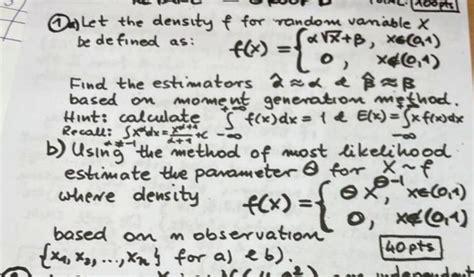 TOTAL: 100pts
① a) Let the density f for random variable X
be defined as: f(x) = { α√x + β, x∈(0,1)
0, x∉(0,1)
Find the estimators α̂ ≈ α & β̂ ≈ β
based on moment generation method.
Hint: calculate ∫_{-∞}^{+∞} f(x)dx = 1 & E(x) = ∫_{-∞}^{+∞} x f(x)dx
Recall: ∫x^α dx = x^{α+1}/(α+1) + c
α≠-1
b) Using the method of most likelihood
estimate the parameter θ for X ~ f
where density f(x) = { θ x^{θ-1}, x∈(0,1)
0, x∉(0,1)
based on n observation
{x₁, x₂, ..., xₙ} for a) & b).
40pts